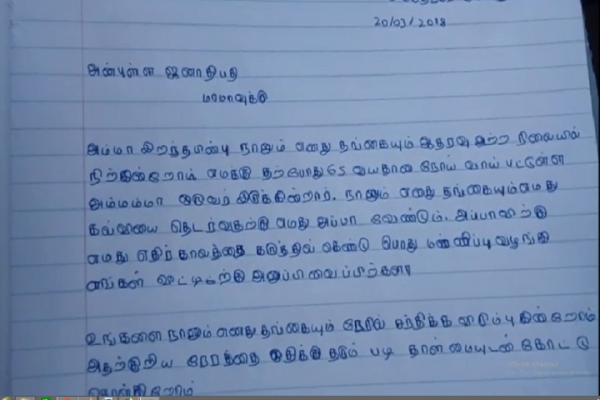 20/03/2018
அன்புள்ள ஜனாதிபதி
மாமாவுக்கு
அம்மா இறந்தபின்பு நானும் எனது தங்கையும் ஆதரவு அற்ற நிலையில்
நிற்கின்றோம் எமக்கு தற்போது 65 வயதான நோய் வாய் பட்டுள்ள
அம்மம்மா ஒருவர் இருக்கின்றார். நானும் எனது தங்கையும் எமது
கல்வியை தொடர்வதற்கு எமது அப்பா வேண்டும். அப்பாவிற்கு
எமது எதிர்காலத்தை கருத்தில் கொண்டு பொது மன்னிப்பு வழங்கி
எங்கள் வீட்டிற்கு அனுப்பி வைப்பீர்களா
உங்களை நானும் எனது தங்கையும் நேரில் சந்திக்க விரும்புகின்றோம்
அதற்குரிய நேரத்தை ஒதுக்கி தரும் படி தாள்மையுடன் கேட்டு
கொள்கிறோம்